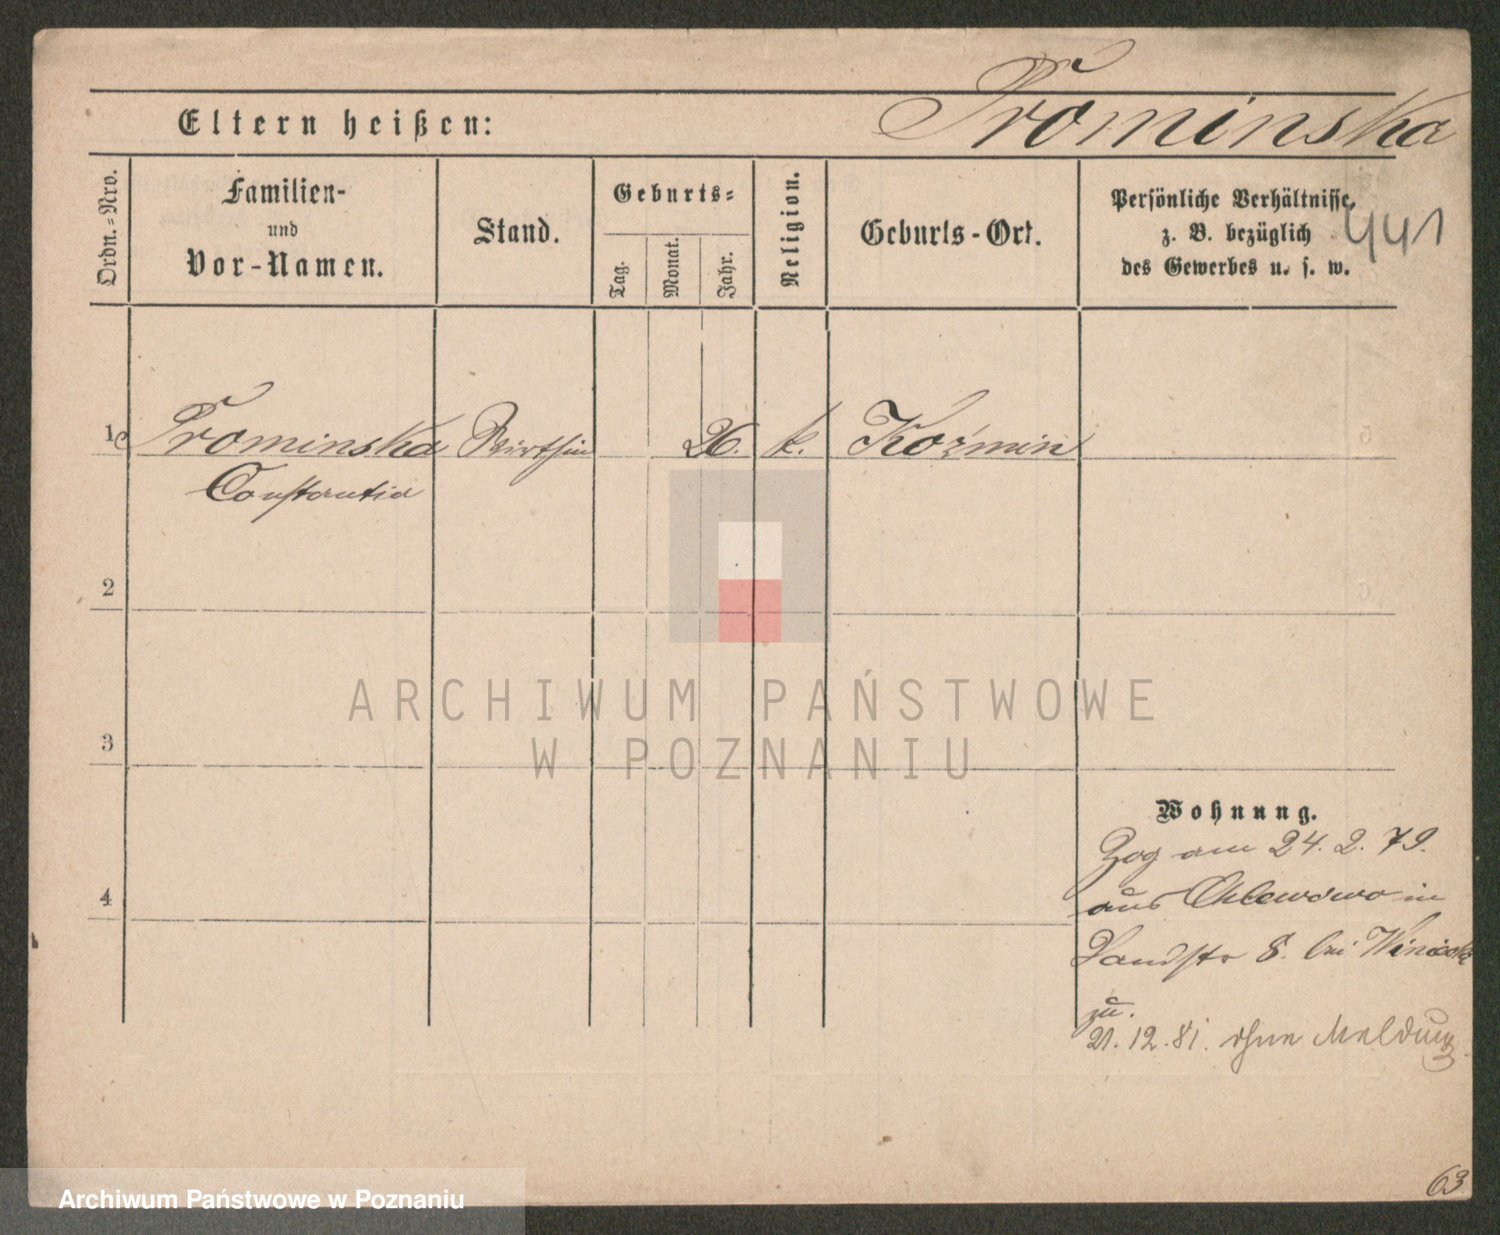 Prominska
Eltern heißen:
Ordn.-Nro.
Familien-
und
Vor-Namen.
Stand.
Geburts-
Tag.
Monat.
Jahr.
Religion.
Geburts-Ort.
Persönliche Verhältnisse,
z. B. bezüglich
des Gewerbes u. s. w.
441
1 Prominska Wirthin 26. k. Koźmin
Constantia
2
3
4
Wohnung.
Zog am 24. 2. 79.
aus Chlewowo in
Landstr 8. bei
zu.
21. 12. 81. ohne Meldung
63
ARCHIWUM PAŃSTWOWE
W POZNANIU
Archiwum Państwowe w Poznaniu